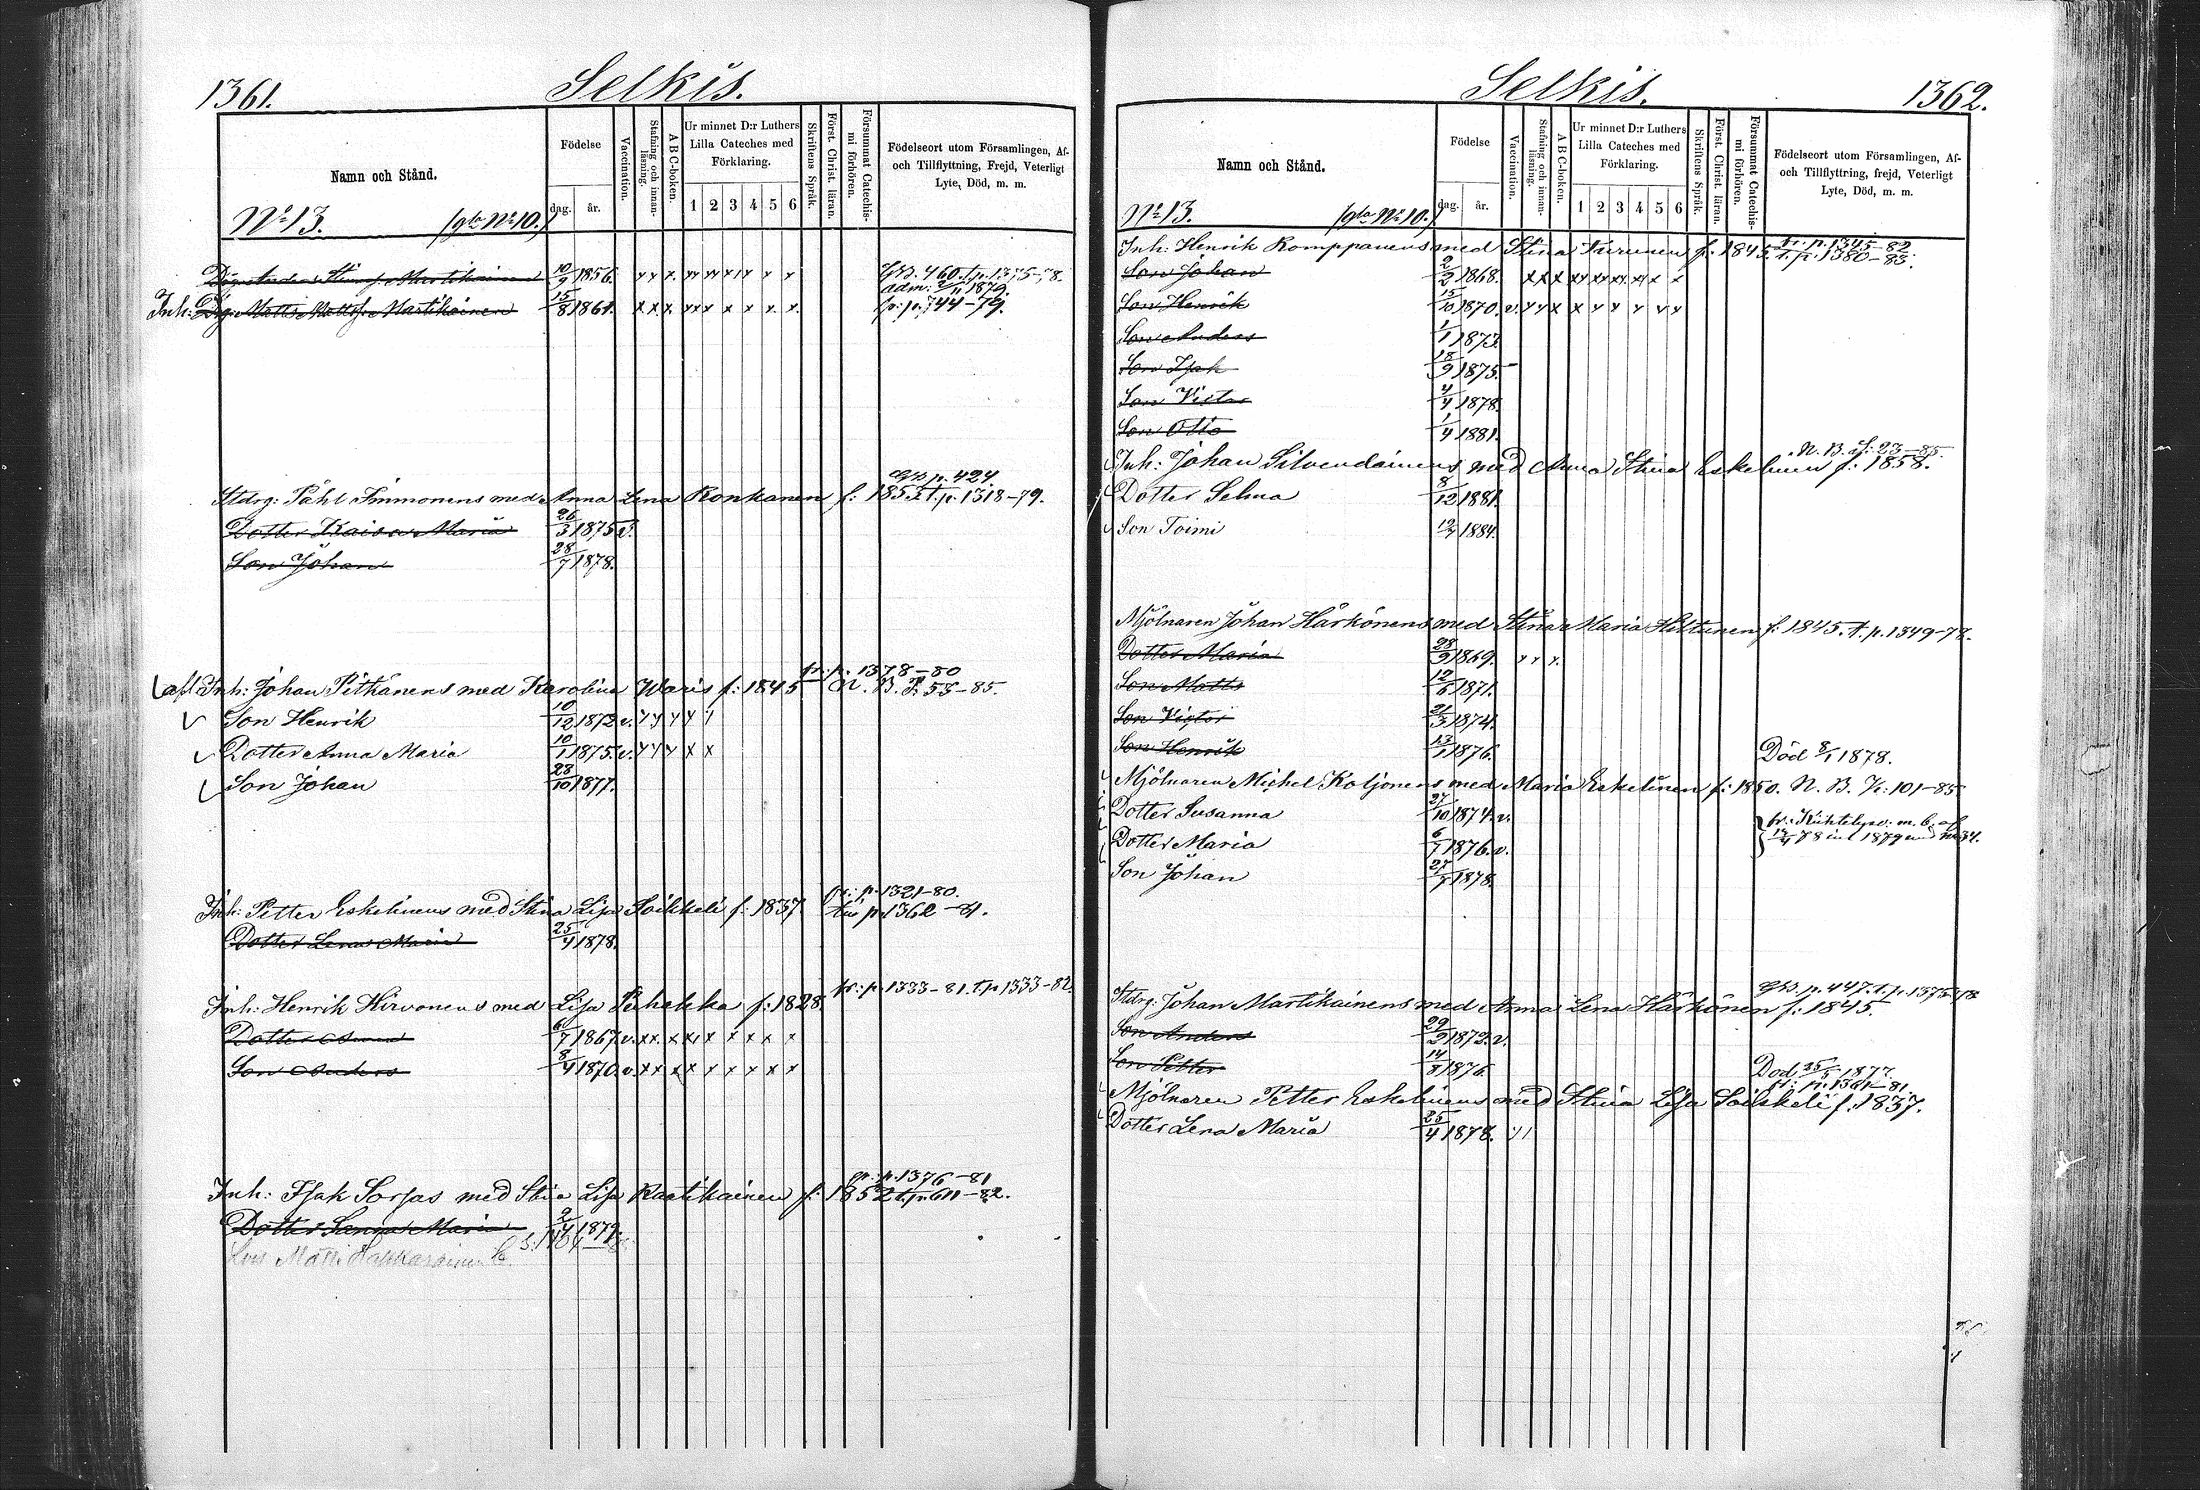 1361.
Selkis.
Namn och Stånd.
Födelse
dag. år.
Vaccination.
Stafning och innanläsning.
A B C-boken.
Ur minnet D:r Luthers Lilla Cateches med Förklaring.
1 2 3 4 5 6
Skriftens Språk.
Först. Christ. läran.
Försummat Catechismi förhören.
Födelseort utom Församlingen, Af- och Tillflyttning, Frejd, Veterligt Lyte, Död, m. m.
No 13. (gla No 10.)
Martikainen 10/9 1856. p. 460. t. p. 1375-78.
adm: 1879.
Inh: Drg: Matts Mattss. Martikainen 15/8 1861. fr: p. 744-79.
p. 424.
Stdrg: Påhl Immonens med Anna Lena Ronkanen f: 1852 t. p. 1318-79.
Dotter Kaisa Maria 26/3 1875 v.
Son Johan 28/7 1878.
fr: p: 1378-80
Inh: Johan Pitkänens med Karolina Waris f: 1845 N. B. P. 53-85.
Son Henrik 10/12 1872 v.
Dotter Anna Maria 10/1 1875. v.
Son Johan 28/10 1877.
fr: p. 1321-80.
Inh: Petter Eskelinens med Stina Lisa Soikkeli f: 1837. till p. 1362-81.
Dotter Lena Maria 25/4 1878.
fr: p. 1333-81. t. p. 1333-82.
Inh: Henrik Hirvonens med Lisa Pihakka f: 1828.
Dotter Anna 6/7 1867 v.
Son Anders 8/4 1870 v.
fr: p. 1376-81
Inh: Isak Sorsas med Stina Lisa Raatikainen f: 1852 t. p. 611-82.
Dotter Maria 2/4 1879.
Matti
1362.
Selkis.
Namn och Stånd.
Födelse
dag. år.
Vaccination.
Stafning och innanläsning.
A B C-boken.
Ur minnet D:r Luthers Lilla Cateches med Förklaring.
1 2 3 4 5 6
Skriftens Språk.
Först. Christ. läran.
Försummat Catechismi förhören.
Födelseort utom Församlingen, Af- och Tillflyttring, frejd, Veterligt Lyte, Död, m. m.
No 13. (gla No 10.)
fr: p. 1345-82
Inh: Henrik Romppanens med Stina Turunen f: 1845. t. p. 1380-83.
Son Johan 2/2 1868.
Son Henrik 15/10 1870. v.
Son Anders 1/1 1873.
Son Isak 18/9 1875.
Son Victor 4/4 1878.
Son Otto 1/4 1881.
N. B. S: 23-85.
Inh: Johan Silvendoinens med Anna Stina Eskelinen f: 1858.
Dotter Selma 8/12 1881.
Son Toimi 1884.
Mjölnaren Johan Härkönens med Stina Maria Hiltunen f: 1845. t. p. 1349-78.
Dotter Maria 28/9 1869.
Son Matts 12/6 1871.
Son Victor 21/3 1874.
Son Henrik 13/1 1876. Död 8/1 1878.
Mjölnaren Michel Koljonens med Maria Eskelinen f: 1850. N. B. K: 101-85
Dotter Susanna 27/10 1874. v.
Dotter Maria 6/7 1876. v.
fr: Kiihtelysv. m. b. af 78 inl 1879 No 34.
Son Johan 27/7 1878.
p. 447. t. p. 1375-78
Stdrg: Johan Martikainens med Anna Lena Härkönen f: 1845.
Son Anders 29/2 1872. v.
Son Petter 14/8 1876. Död 25/5 1877.
fr: p. 1361-81.
Mjölnaren Petter Eskelinens med Stina Lisa Soikkeli f: 1837.
Dotter Lena Maria 25/4 1878.